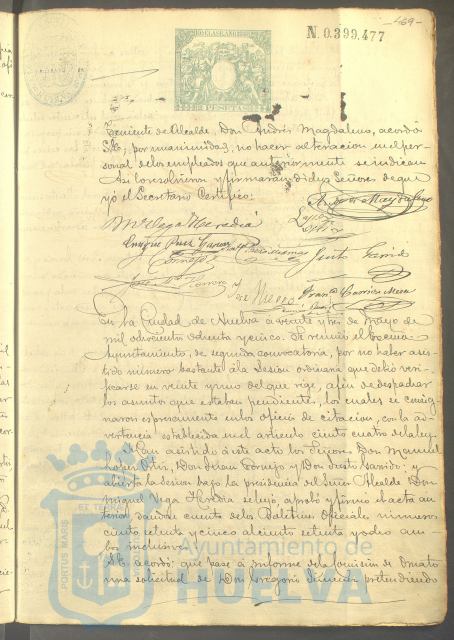 469
N. 0.399.477
PESETAS
Teniente de Alcalde, Don Andrés Magdaleno, acordó
S.E., por unanimidad, no hacer alteracion en el per-
sonal de los empleados que anteriormente se indican
Asi lo resolvieron y firmaran dichos Señores de que
yo el Secretario Certifico:
Andrés Magdaleno
M. Vega Heredia
López
Enrique Ruiz
Cornejo
Justo Garrido
José Mª Romero
José Nieves
Franco
En la Ciudad de Huelva á veinte y tres de Mayo de
mil ochocientos ochenta y cinco. Se reunió el Excmo
Ayuntamiento, de segunda convocatoria, por no haber asis-
tido número bastante á la Sesion ordinaria que debió veri-
ficarse en veinte y uno del que rige, á fin de despachar
los asuntos que estaban pendientes, los cuales se consig-
naron espresamente en los oficios de citacion, con la ad-
vertencia establecida en el articulo ciento cuatro de la ley
Han asistido á este acto los Señores Don Manuel
López Ortiz, Don Juan Cornejo y Don Justo Garrido; y
abierta la sesion bajo la presidencia del Señor Alcalde Don
Miguel Vega Heredia se leyó, aprobó y firmó el acta an-
terior dandose cuenta de los Boletines Oficiales números
ciento setenta y cinco al ciento setenta y ocho am-
bos inclusive
S.E. acordó: que pase á informe de la Comision de Ornato
una solicitud de Don Gregorio Jimenez pretendiendo
PORTUS MARIS
ET TERRAE
Ayuntamiento de
HUELVA